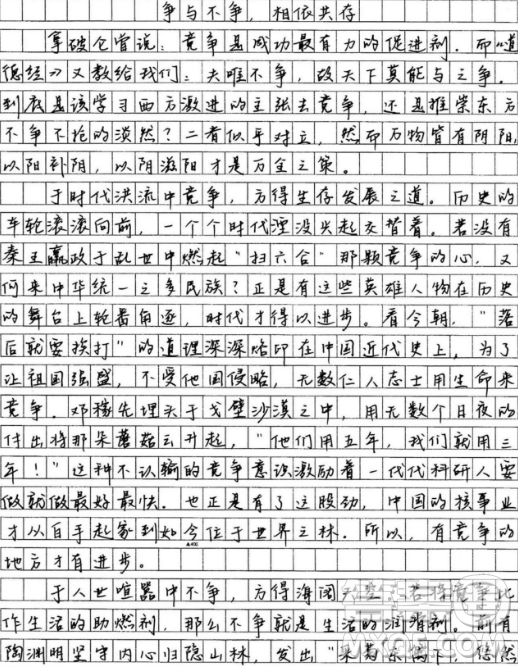 争与不争，相依共存
拿破仑曾说：竞争是成功最有力的促进剂。而《道
德经》又教给我们：夫唯不争，故天下莫能与之争。
到底是该学习西方激进的主张去竞争，还是推崇东方
不争不抢的淡然？二者似乎对立，然而万物皆有阴阳，
以阳补阴，以阴滋阳才是万全之策。
于时代洪流中竞争，方得生存发展之道。历史的
车轮滚滚向前，一个个时代湮没兴起交替着。若没有
秦王嬴政于乱世中燃起“扫六合”那颗竞争的心，又
何来中华统一之多民族？正是有这些英雄人物在历史
的舞台上轮番角逐，时代才得以进步。看今朝，“落
后就要挨打”的道理深深烙印在中国近代史上，为了
让祖国强盛，不受他国侵略，无数仁人志士用生命来
竞争。邓稼先埋头于戈壁沙漠之中，用无数个日夜的
付出将那朵蘑菇云升起，“他们用五年，我们就用三
年！”这种不认输的竞争意识激励着一代代科研人要
做就做最好最快。也正是有了这股劲，中国的核事业
才从白手起家到如今位于世界之林。所以，有竞争的
地方才有进步。
于人世喧嚣中不争，方得海阔天空。若将竞争比
作生活的助燃剂，那么不争就是生活的润滑剂。前有
陶渊明坚守内心归隐山林，发出“采菊东篱下，悠然